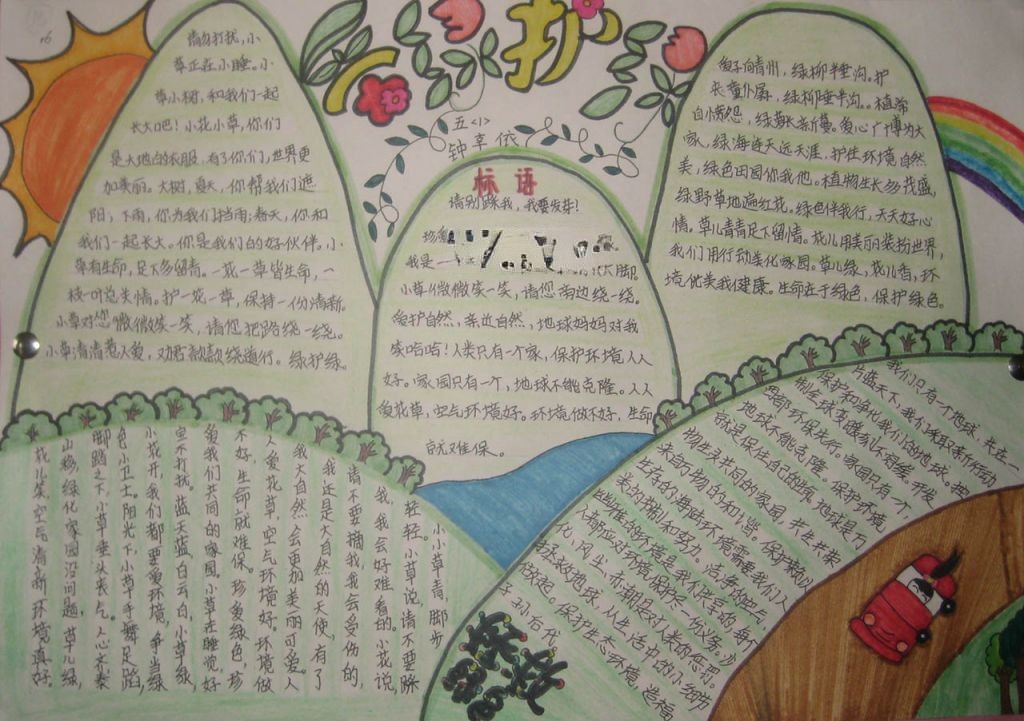 护
五<1>
钟享依
请勿打扰，小
草正在小睡。小
草小树，和我们一起
长大吧！小花小草，你们
是大地的衣服，有了你们，世界更
加美丽。大树，夏天，你帮我们遮
阳，下雨，你为我们挡雨；春天，你和
我们一起长大。你是我们的好伙伴。小
草有生命，足下多留情。一花一草皆生命，一
枝一叶总关情。护一花一草，保持一份清新。
小草对您微微笑一笑，请您把路绕一绕。
小草清清惹人爱，劝君款款绕道行。绿护绿。
标语
请别踩我，我要发芽！
珍
我是一
脚
小草微微笑一笑，请您旁边绕一绕。
爱护自然，亲近自然，地球妈妈对我
笑哈哈！人类只有一个家，保护环境人人
好。家园只有一个，地球不能克隆。人人
爱花草，空气环境好。环境做不好，生命
就难保。
爱子向青州，绿柳半垂沟。护
长童仆孱，绿柳垂半沟。植帝
自情怨，绿藜长新蔓。爱心广博为大
家，绿海连天远天涯，护住环境自然
美，绿色田园你我他。植物生长多茂盛，
绿野草地遍红花。绿色伴我行，天天好心
情。草儿青青足下留情。花儿用美丽装扮世界，
我们用行动美化家园。草儿绿，花儿香，环
境优美我健康。生命在于绿色，保护绿色。
小小草青，脚步
轻轻。小草说，请不要踩
我，我会好难看的。小花说，
请不要摘我，我会受伤的，
我还是大自然的天使，有了
我大自然会更加美丽可爱。人
人爱花草，空气环境好。环境做
不好，生命就难保。珍爱绿色，珍
爱我们共同的家园。小草在睡觉，好
鱼不打扰。蓝天蓝，白云白，小草绿，
小花开，我们都要爱环境，争当绿
色小卫士。阳光下，小草手舞足蹈，
脚踏之下，小草垂头丧气。人心齐泰
山移，绿化家园没问题。草儿绿，
花儿笑，空气清新环境真好。
我们只有一个地球，共在一
片蓝天下，我们采取责任行动
保护和净化我们的地球。控
制全球变暖刻不容缓。开发
西部环保先行。家园只有一个，
地球不能克隆。保护环境，
就是保住自己的路，地球是万
物生灵共同的家园，共生共荣
来自万物的和谐。保护赖以
生存的海陆环境需要我们人
类的克制和努力。洁净的空气，
幽雅的环境是我们共享的，每个
人都应对环境保护尽一份义务。沙
化，风尘，赤潮是对人类的惩罚。
拯救地球，从生活中的小细节
做起。保护生态环境，造福
子孙后代